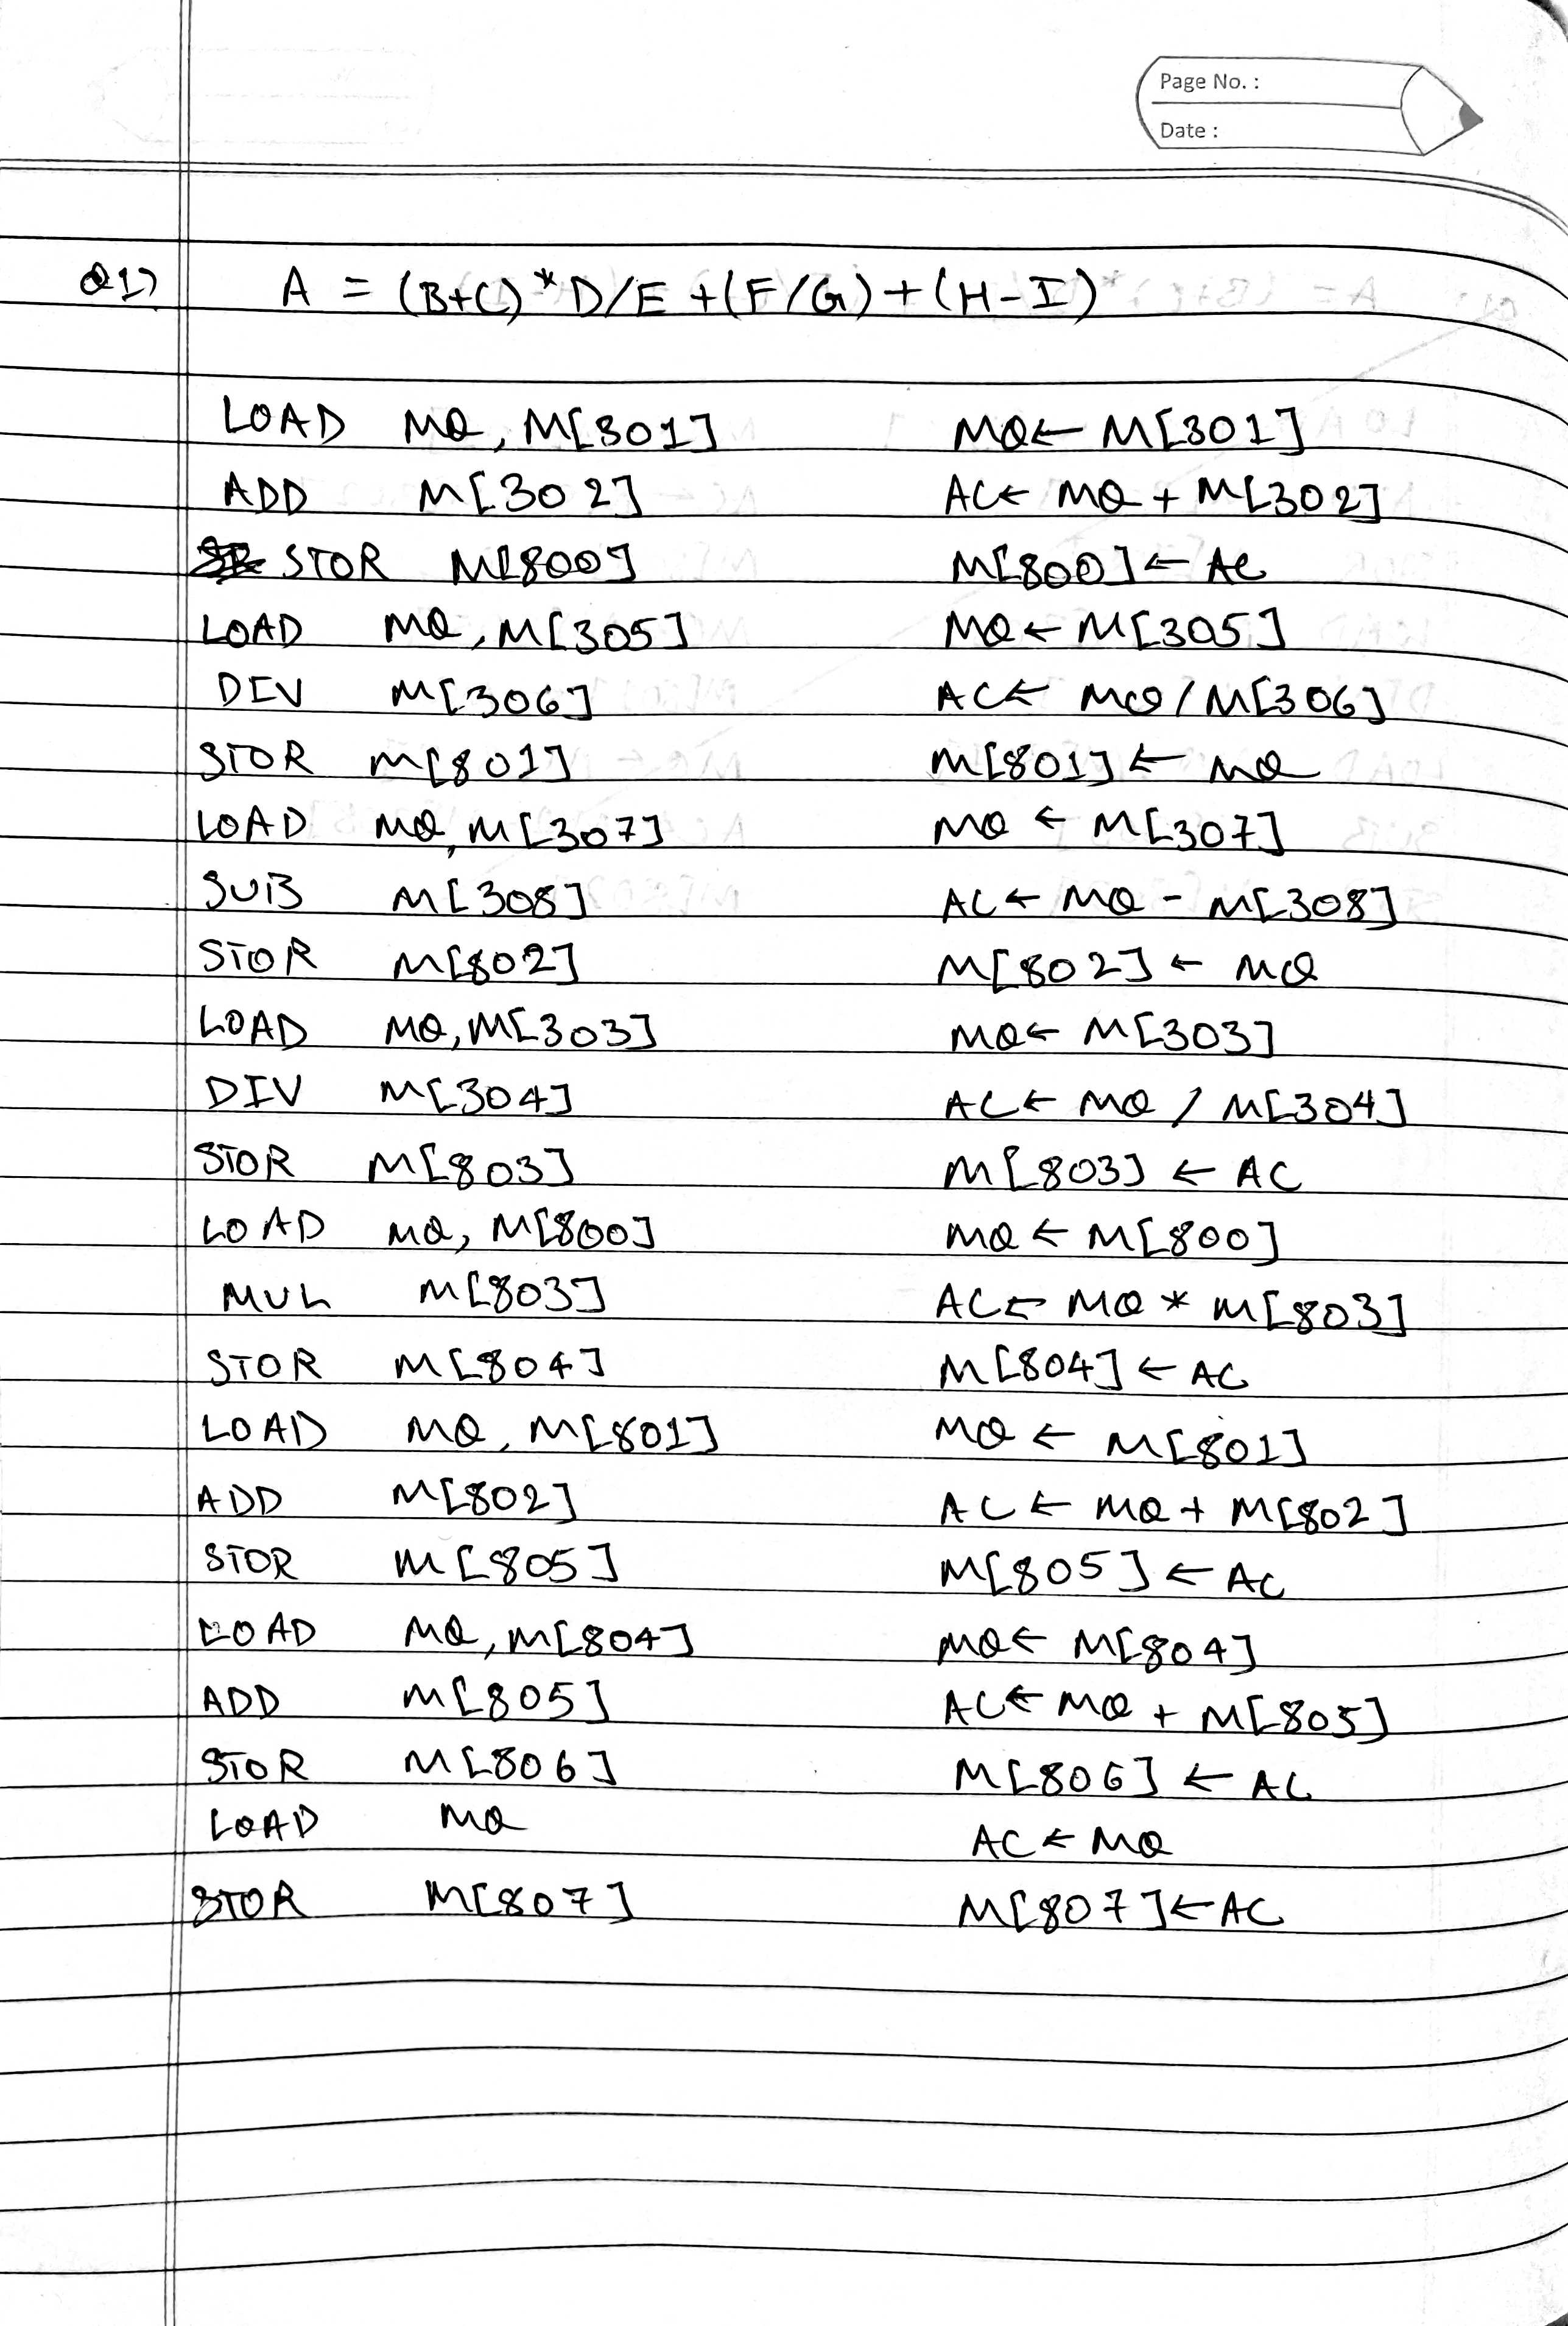 Page No. :
Date :
Q1) A = (B+C)*D/E +(F/G)+(H-I)
LOAD MQ, M[301] MQ← M[301]
ADD M[302] AC← MQ + M[302]
STOR M[800] M[800]← AC
LOAD MQ, M[305] MQ← M[305]
DIV M[306] AC← MQ / M[306]
STOR M[801] M[801]← MQ
LOAD MQ, M[307] MQ ← M[307]
SUB M[308] AC← MQ - M[308]
STOR M[802] M[802] ← MQ
LOAD MQ, M[303] MQ← M[303]
DIV M[304] AC← MQ / M[304]
STOR M[803] M[803] ← AC
LOAD MQ, M[800] MQ ← M[800]
MUL M[803] AC← MQ * M[803]
STOR M[804] M[804]← AC
LOAD MQ, M[801] MQ ← M[801]
ADD M[802] AC ← MQ + M[802]
STOR M[805] M[805] ← AC
LOAD MQ, M[804] MQ← M[804]
ADD M[805] AC← MQ + M[805]
STOR M[806] M[806] ← AC
LOAD MQ AC ← MQ
STOR M[807] M[807]←AC